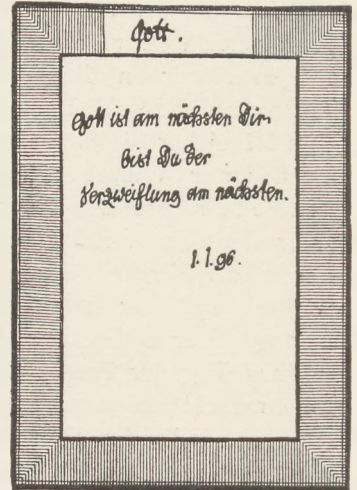 Gott.
Gott ist am nächsten Dir
bist Du der
Verzweiflung am nächsten.
1.1.96.